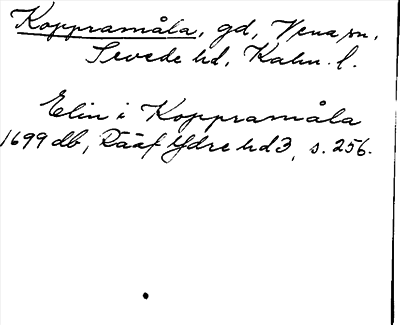 Koppramåla, gd, Vena sn,
Sevede hd, Kalm. l.
Elin i Koppramåla
1699 db, Rääf Ydre hd 3, s. 256.